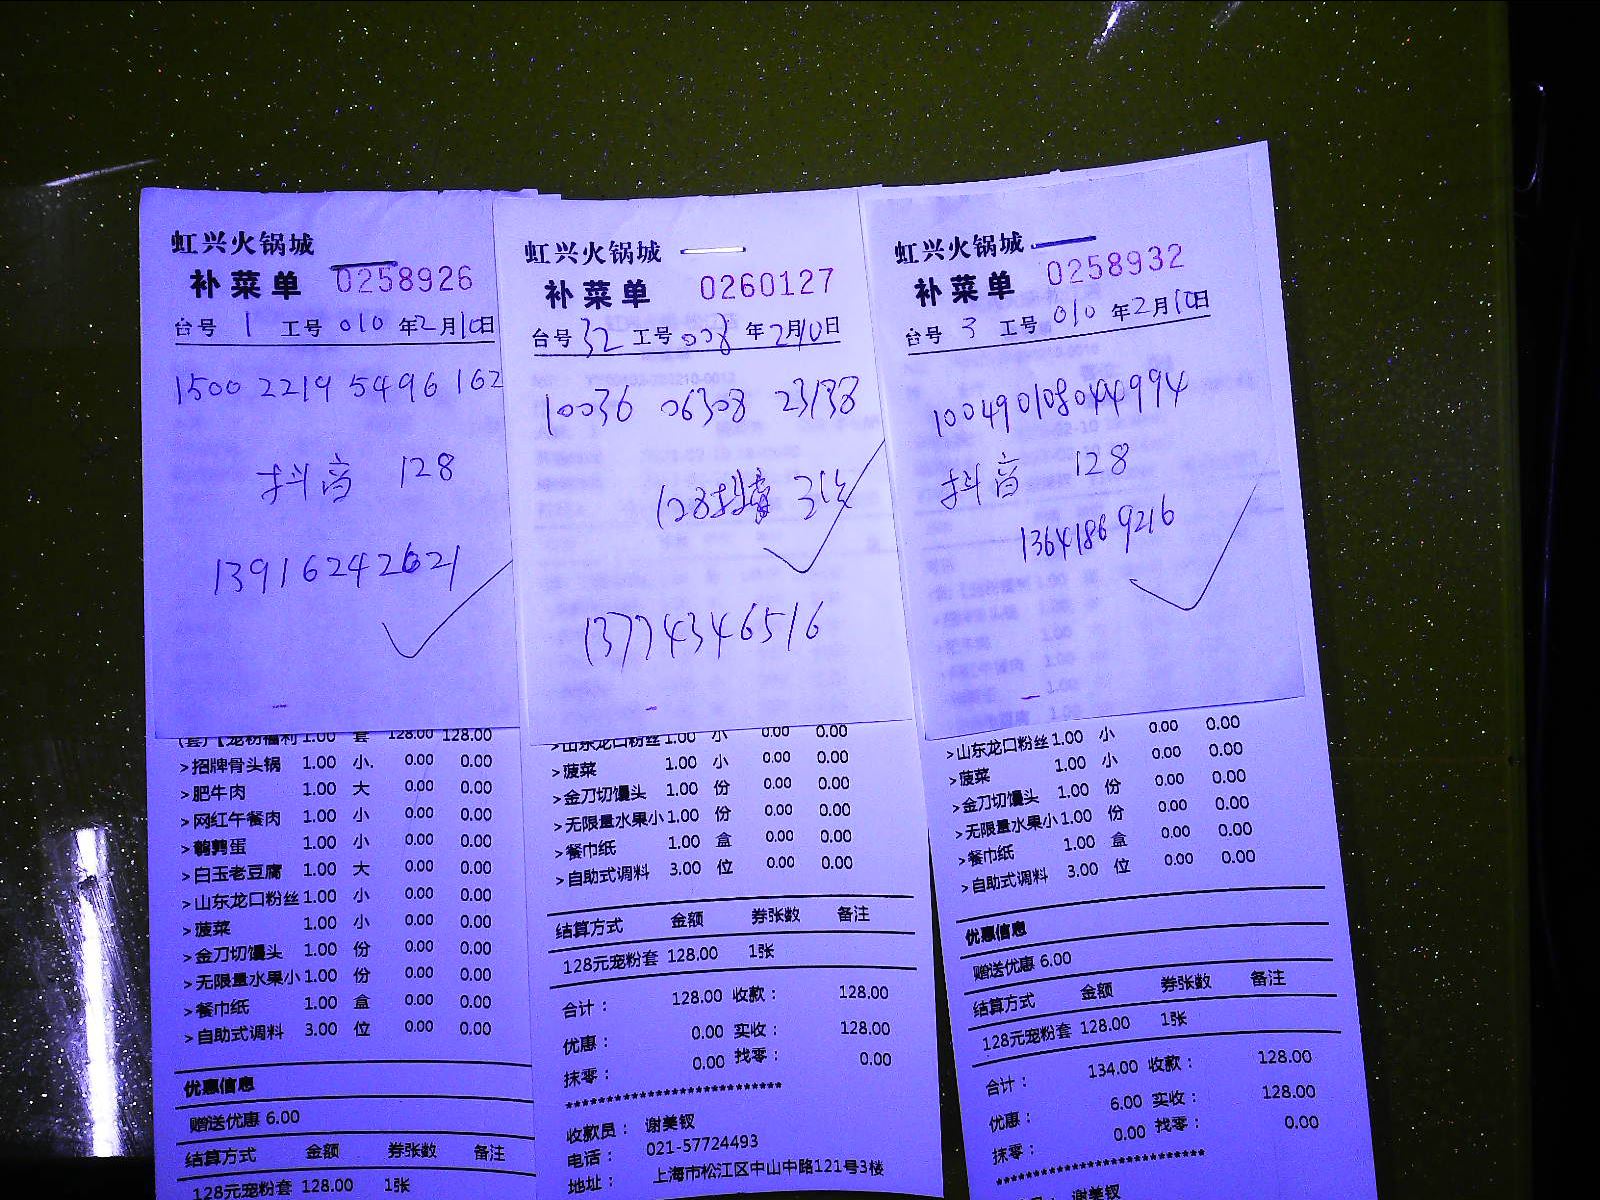 虹兴火锅城
补菜单 0258926
台号 1 工号 010 年2月10日
1500 2219 5496 162
抖音 128
13916242621
(套)【宠粉福利 1.00 套 128.00 128.00
>招牌骨头锅 1.00 小. 0.00 0.00
>肥牛肉 1.00 大 0.00 0.00
>网红午餐肉 1.00 小 0.00 0.00
>鹌鹑蛋 1.00 小 0.00 0.00
>白玉老豆腐 1.00 大 0.00 0.00
>山东龙口粉丝 1.00 小 0.00 0.00
>菠菜 1.00 小 0.00 0.00
>金刀切馒头 1.00 份 0.00 0.00
>无限量水果小 1.00 份 0.00 0.00
>餐巾纸 1.00 盒 0.00 0.00
>自助式调料 3.00 位 0.00 0.00
优惠信息
赠送优惠 6.00
结算方式 金额 券张数 备注
128元宠粉套 128.00 1张
虹兴火锅城
补菜单 0260127
台号 32 工号 008 年2月10日
10036 06308 23138
128抖音
13774346516
>山东龙口粉丝 1.00 小 0.00 0.00
>菠菜 1.00 小 0.00 0.00
>金刀切馒头 1.00 份 0.00 0.00
>无限量水果小 1.00 份 0.00 0.00
>餐巾纸 1.00 盒 0.00 0.00
>自助式调料 3.00 位 0.00 0.00
结算方式 金额 券张数 备注
128元宠粉套 128.00 1张
合计: 128.00 收款: 128.00
优惠: 0.00 实收: 128.00
抹零: 0.00 找零: 0.00
******************************
收款员: 谢美钗
电话: 021-57724493
地址: 上海市松江区中山中路121号3楼
虹兴火锅城
补菜单 0258932
台号 3 工号 010 年2月10日
100490108044994
抖音 128
13641869216
>山东龙口粉丝 1.00 小 0.00 0.00
>菠菜 1.00 小 0.00 0.00
>金刀切馒头 1.00 份 0.00 0.00
>无限量水果小 1.00 份 0.00 0.00
>餐巾纸 1.00 盒 0.00 0.00
>自助式调料 3.00 位 0.00 0.00
优惠信息
赠送优惠 6.00
结算方式 金额 券张数 备注
128元宠粉套 128.00 1张
合计: 134.00 收款: 128.00
优惠: 6.00 实收: 128.00
抹零: 0.00 找零: 0.00
******************************
谢美钗